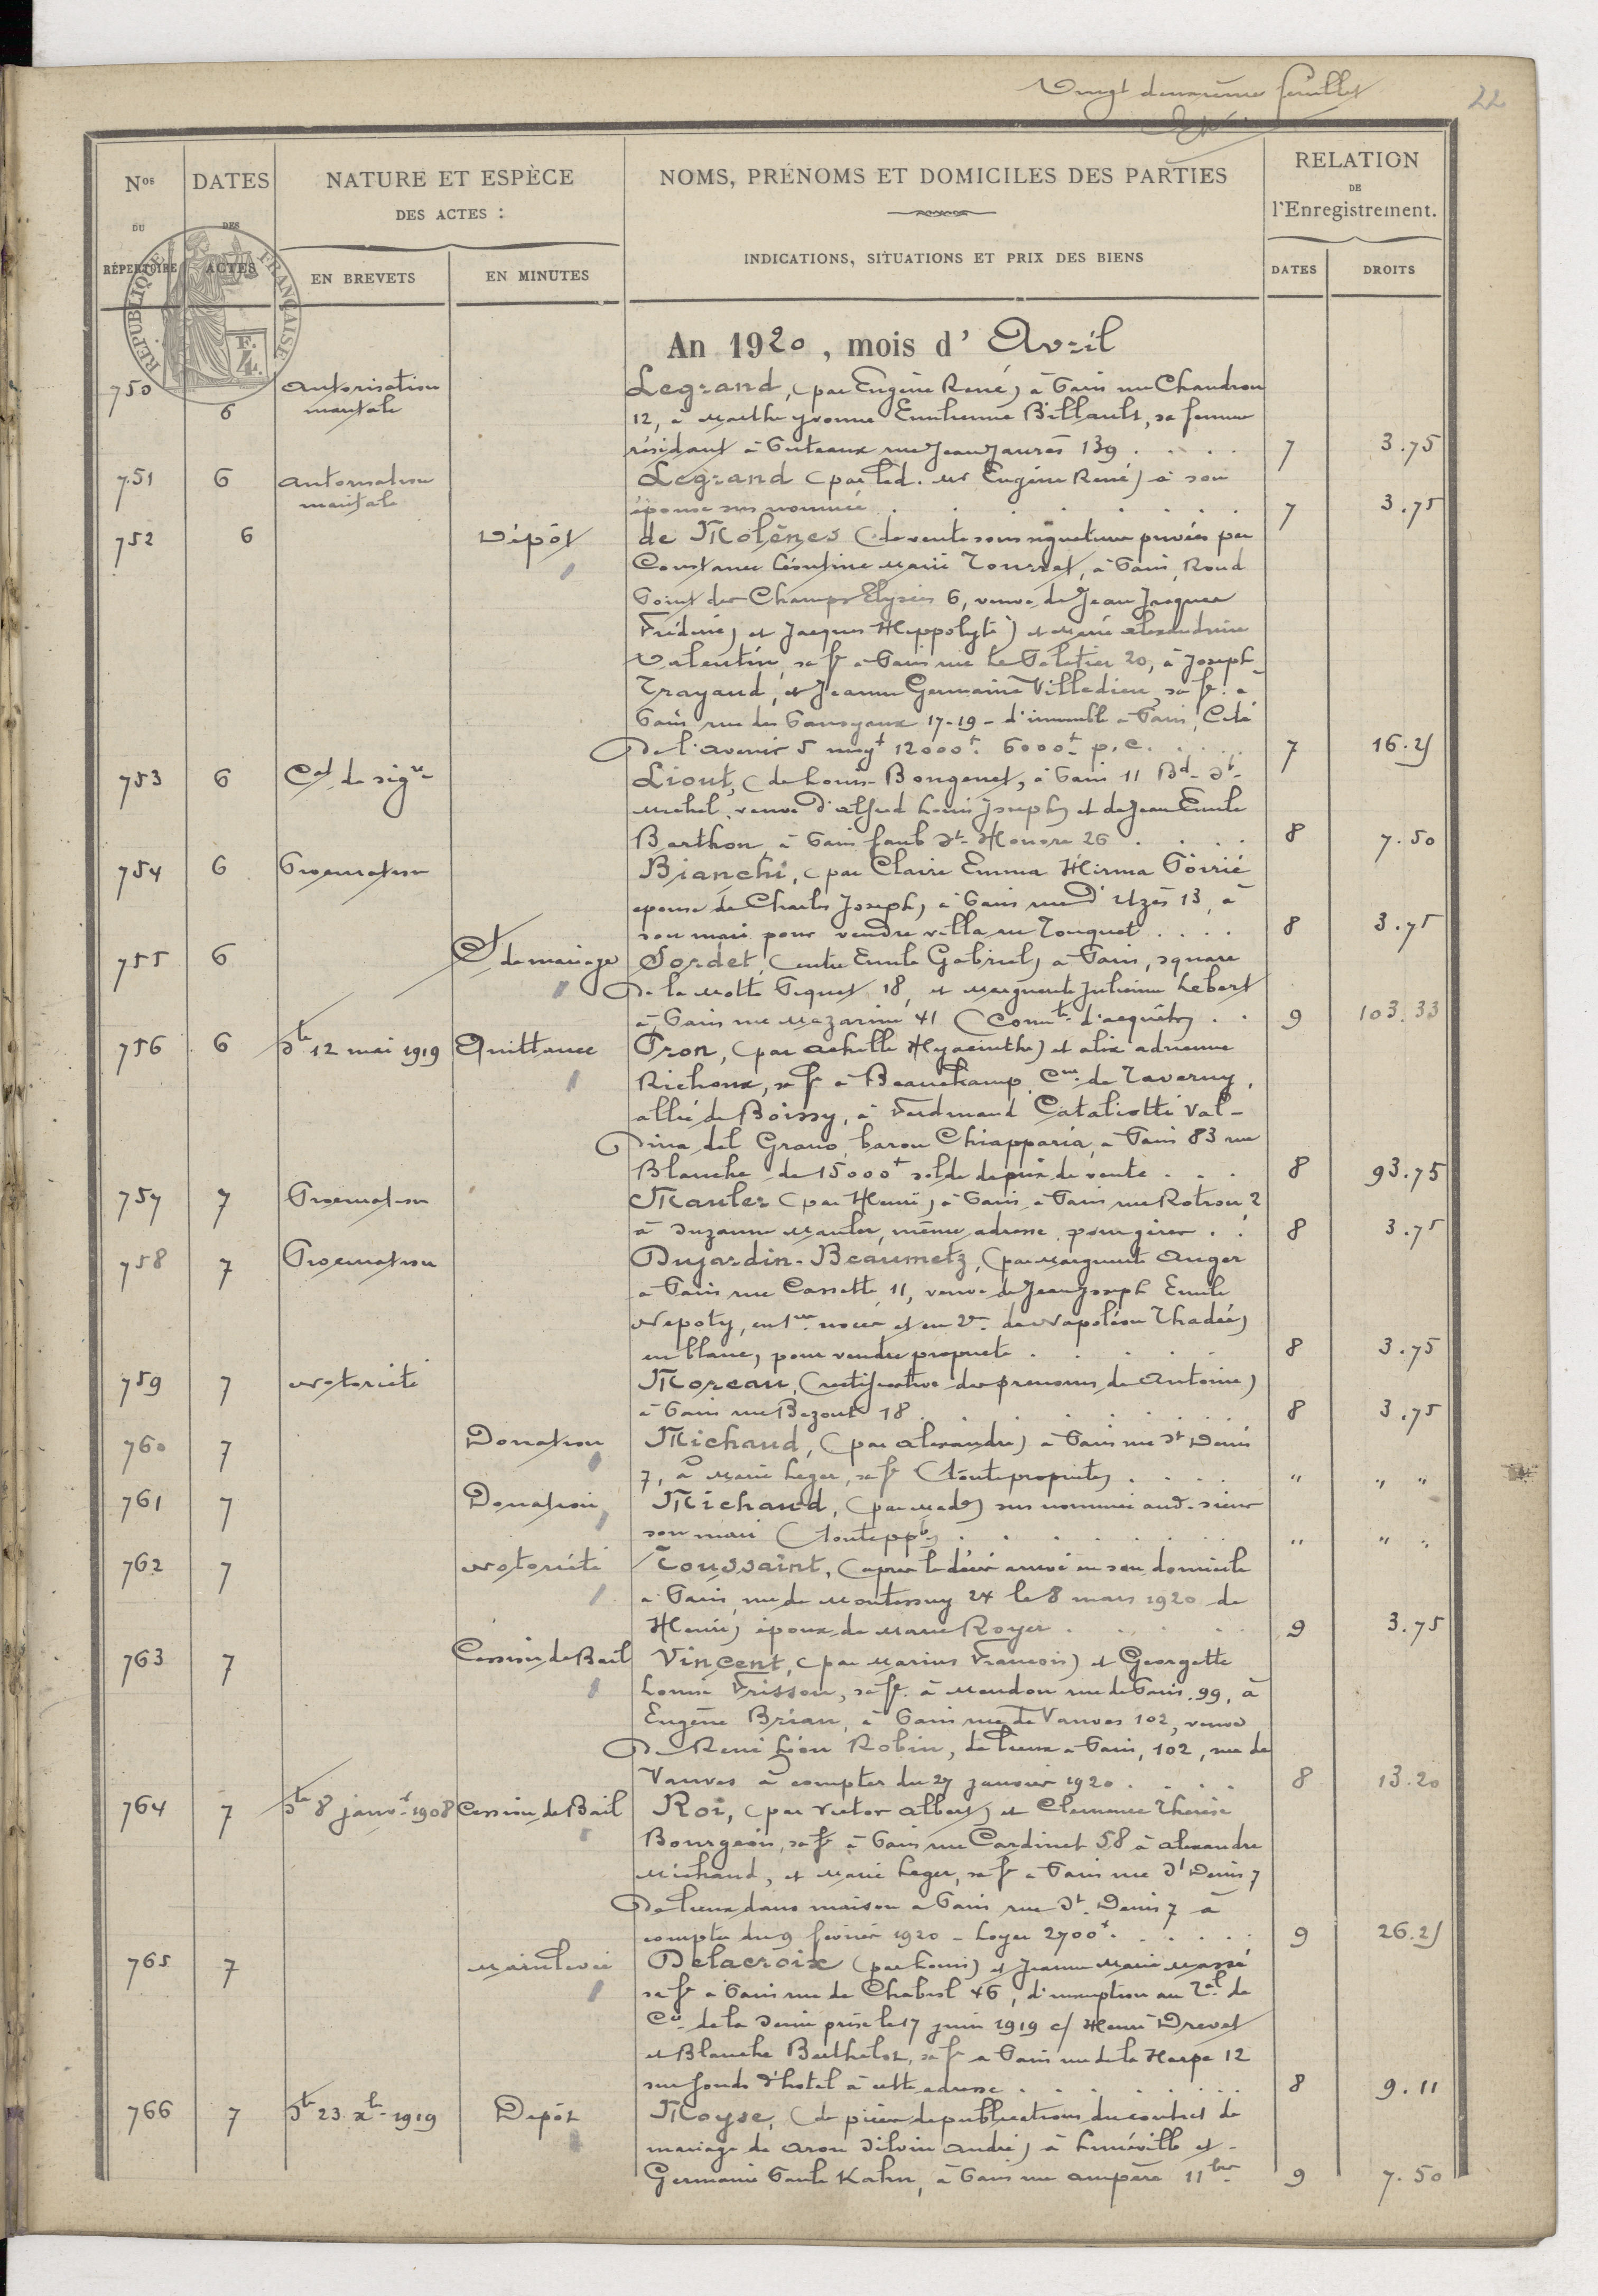 Vingt deuxième feuillet
22
Nos DU RÉPERTOIRE
DATES DES ACTES
NATURE ET ESPÈCE
DES ACTES :
EN BREVETS
EN MINUTES
NOMS, PRÉNOMS ET DOMICILES DES PARTIES
INDICATIONS, SITUATIONS ET PRIX DES BIENS
RELATION
DE
l'Enregistrement.
DATES
DROITS
RÉPUBLIQUE FRANÇAISE
F.
4.
An 1920, mois d' Avril
750 6 Autorisation maritale Legrand, (par Eugène René) à Paris rue Chaudron
12, à Marthe Yvonne Emilienne Billault, sa femme
résidant à Puteaux rue Jean Jaurès 139 . . . . 7 3.75
751 6 Autorisation maritale Legrand (par led. Mr Eugène René) à son
épouse sus nommée . . . . . . 7 3.75
752 6 Dépôt de Molènes (de vente sous signatures privées par
Constance Léontine Marie Tourret, à Paris, Rond
Point des Champs Elysées 6, veuve de Jean Jacques
Frédéric, et Jacques Hippolyte) et Marie Alexandrine
Valentin, sa fe à Paris rue Le Peletier 20, à Joseph
Trayaud, et Jeanne Germaine Villedieu sa fe. à
Paris rue des Panoyaux 17-19 - d'immeuble à Paris, Cité
de l'avenir 5 moyt 12000f. 6000f p.c. . . . 7 16.25
753 6 Cat de sigre Liout, (de Louis Bongenet, à Paris 11 Bd St
Michel, veuve d'Alfred Louis Joseph) et de Jean Emile
Barthon, à Paris faub St Honoré 26 . . . . 8 7.50
754 6 Procuration Bianchi, (par Claire Emma Hirma Poirié
épouse de Charles Joseph) à Paris rue d'Uzès 13, à
son mari pour vendre villa au Touquet . . . . 8 3.75
755 6 Ct de mariage Sordet, (entre Emile Gabriel) à Paris, square
de la Motte Picquet 18, et Marguerite Julienne Lebert
à Paris rue Mazarine 41 (Comté d'acquêts) . . 9 103.33
756 6 Ste 12 mai 1919 Quittance Pron, (par Achille Hyacinthe) et Alix Adrienne
Richoux, sa fe à Beauchamp Cne de Taverny,
allée de Boissy, à Ferdinand Cataliotti Val-
dina del Grano, baron Chiapparia, à Paris 83 rue
Blanche de 15000f solde de prix de vente . . . 8 93.75
757 7 Procuration Manler (par Henri) à Paris, à Paris rue Rotrou 2
à Suzanne Manler, même adresse, pour gérer . . 8 3.75
758 7 Procuration Dujardin-Beaumetz, (par Marguerite Anger
à Paris rue Cassette 11, veuve de Jean Joseph Emile
Nepoty, en 1res noces et en 2es de Napoléon Thadée)
en blanc, pour vendre propriété . . . . . 8 3.75
759 7 Notoriété Moreau, (rectificative des prénoms de Antoine)
à Paris rue Bezout 18 . . . . . . . 8 3.75
760 7 Donation Michaud, (par Alexandre) à Paris rue St Denis
7, à Marie Leger, sa fe (toute propriété) . . . . " " "
761 7 Donation Michaud, (par Made) sus nommée aud. sieur
son mari (toute ppté) . . . . . . . " " "
762 7 Notoriété Toussaint, (après le décès arrivé en son domicile
à Paris, rue de Montessuy 24 le 8 mars 1920 de
Henri) époux de Marie Royer . . . . . 9 3.75
763 7 Cession de Bail Vincent, (par Marius François) et Georgette
Louise Frisson, sa fe. à Meudon rue de Paris 99, à
Eugène Brian, à Paris rue de Vanves 102, veuve
de René Léon Robin, de lieux à Paris, 102, rue de
Vanves à compter du 27 janvier 1920 . . . . 8 13.20
764 7 Ste 8 janvr 1908 Cession de Bail Roi, (par Victor Albert) et Clemence Thérèse
Bourgeois, sa fe à Paris rue Cardinet 58 à Alexandre
Michaud, et Marie Leger, sa fe à Paris rue St Denis 7
de lieux dans maison à Paris rue St Denis 7 à
compter du 9 février 1920 - Loyer 2700f. . . . . . 9 26.25
765 7 Mainlevée Delacroix (par Louis) et Jeanne Marie Massé
sa fe à Paris rue de Chabrol 46, d'inscription au Tal de
Cce de la Seine prise le 17 juin 1919 c/ Henri Drevet
et Blanche Berthelot, sa fe à Paris rue de la Harpe 12
sur fonds d'hotel à cette adresse . . . . . . . 8 9.11
766 7 Ste 23 Xbre 1919 Depôt Moyse, (de pièces de publications du contrat de
mariage de Aron Silvin André) à Lunéville et
Germaine Paule Kahn, à Paris rue Ampère 11 bis 9 7.50